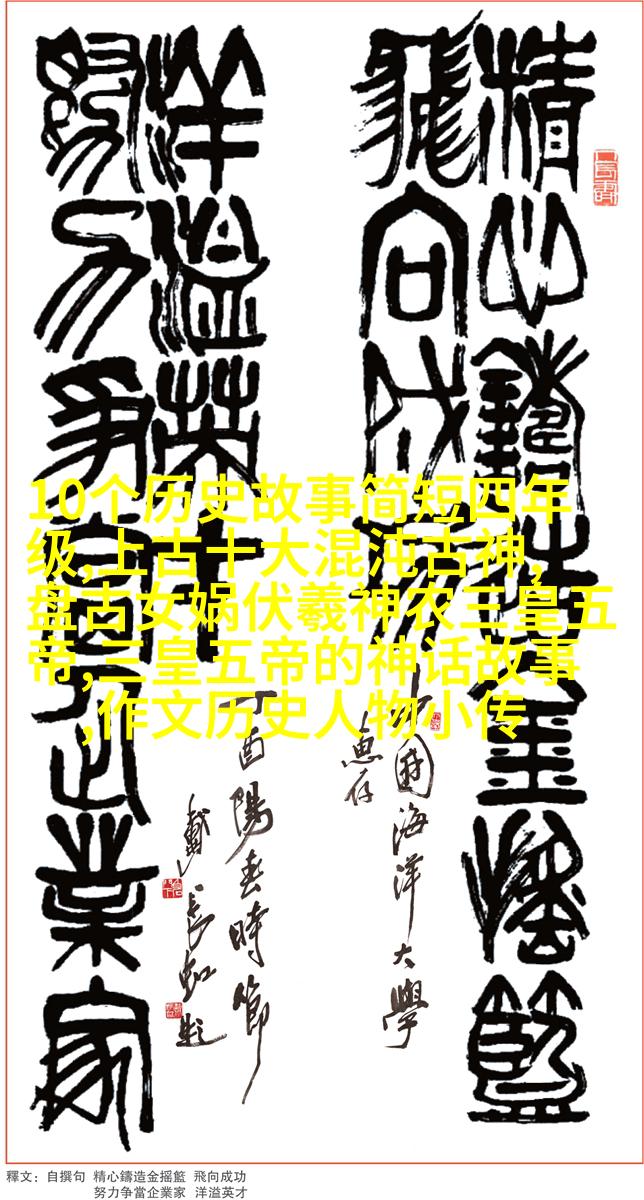 精心鑄造金摇籃
飛向成功
中國海洋大學
惠存
努力争當企業家
洋溢英才
丁酉陽春時節
戴長虹題
10个历史故事简短四年
级,上古十大混沌古神,
盘古女娲伏羲神农三皇五
帝,三皇五帝的神话故事
,作文历史人物小传
釋文：自撰句 精心鑄造金摇籃 飛向成功
努力争當企業家 洋溢英才